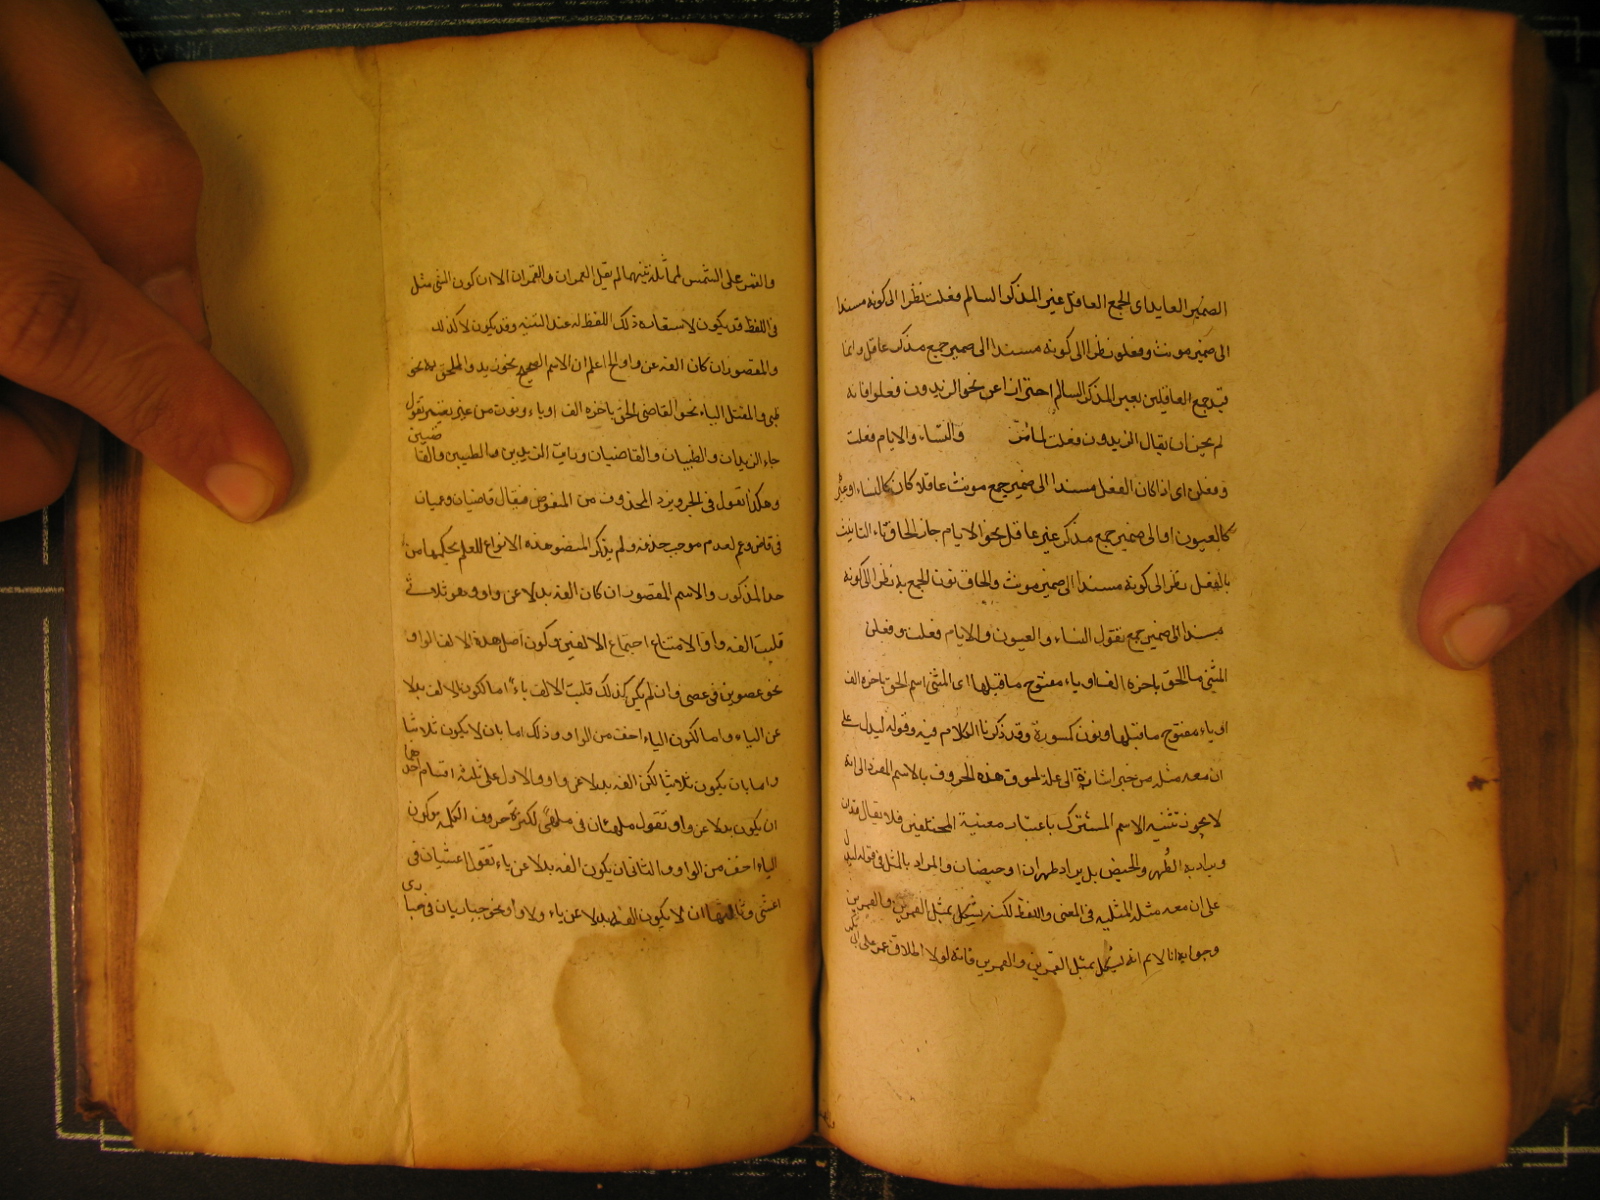 الضمير العايد اى الجمع العاقل غير المذكر السالم فعلت نظرا الى كونه مسندا
الى ضمير مونث وفعلو نظرا الى كونه مسندا الى ضمير جمع مذكر عاقل وانما
قيد جمع العاقلين بغير المذكر السالم احترازا عن نحو الزيدون فعلوا فانه
لم يجز ان يقال الزيدون فعلت لما مر والنساء والايام فعلت
وفعلن اى اذا كان الفعل مسندا الى ضمير جمع مونث عاقلا كان كالنساء او غيره
كالعيون او الى ضمير جمع مذكر غير عاقل نحو الايام جاز الحاق تاء التانيث
بالفعل نظرا الى كونه مسندا الى ضمير مونث والحاق نون الجمع به نظرا الى كونه
مسندا الى ضمير جمع تقول النساء والعيون والايام فعلت وفعلن
المثنى ما الحق باخره الف او ياء مفتوح ما قبلها اى المثنى اسم الحق باخره الف
او ياء مفتوح ما قبلها ونون كسورة وقد ذكرنا الكلام فيه وقوله ليدل على
ان معه مثله من خبر اشارة الى علة لحوق هذه الحروف بالاسم المفرد الى انه
لا يجوز تثنيه الاسم المشترك باعتبار معنييه المختلفين فلا يقال قران
ويراد به الطهر والحيض بل يراد طهران او حيضان والمراد بالمثل فى قوله ليدل
على ان معه مثله المثليه فى المعنى واللفظ لكنه يشكل بمثل القمرين والعمرين
وجوابه انا لا نم انه يشكل بمثل القمرين والعمرين فانه لولا اطلاق عمر على ابى بكر
والقمر على الشمس لمماثلة بينهما لم يقل العمران والقمران الا ان كون الشئ مثل
فى اللفظ قد يكون لاستحقاقه ذلك اللفظ له عند التثنيه وقد يكون لا كذلك
والمقصور ان كان الفه عن واو الخ اعلم ان الاسم الصحيح نحو زيد والملحق به نحو
ظبى والمعتل الياء نحو القاضى الحق باخره الف او ياء ونون من غير تغيير تقول
جاء الزيدان والظبيان والقاضيان ورايت الزيدين والظبيين والقاضيين
وهكذا تقول فى الجر ويرد المحذوف من المنقوص فيقال قاضيان وعميان
فى قاض وعم لعدم موجب حذفه ولم يذكر المصنف هذه الانواع للعلم بحكمها من
حد المذكور والاسم المقصور ان كان الفه بدلا عن واو وهو ثلاثى
قلبت الفه واوا لامتناع اجتماع الالفين وكون اصل هذة الالف الواو
نحو عصوين فى عصى وان لم يكن كذلك قلبت الالف ياء اما لكون الالف بدلا
عن الياء واما لكون الياء اخف من الواو وذلك اما بان لا يكون ثلاثيا
واما بان يكون ثلاثيا لكن الفه بدلا عن واو والاول على ثلثه اقسام احدهما
ان يكون بدلا عن واو تقول ملهيان فى ملهى لكثرة حروف الكلمه وكون
الياء اخف من الواو والثانى ان يكون الفه بدلا عن ياء تقول اعشيان فى
اعشى وثالثها ان لا يكون الفه بدلا عن ياء ولا واو نحو حباريان فى حبارى